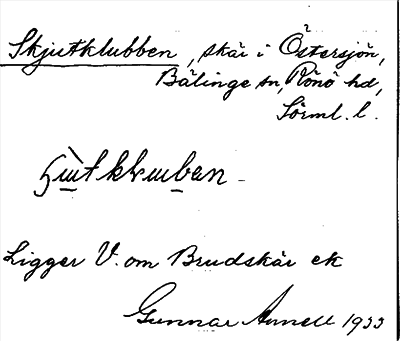 Skjutklubben, skär i Östersjön,
Bälinge sn, Rönö hd,
Sörml. l.
Ligger V. om Brudskär ek
Gunnar Amnell 1933